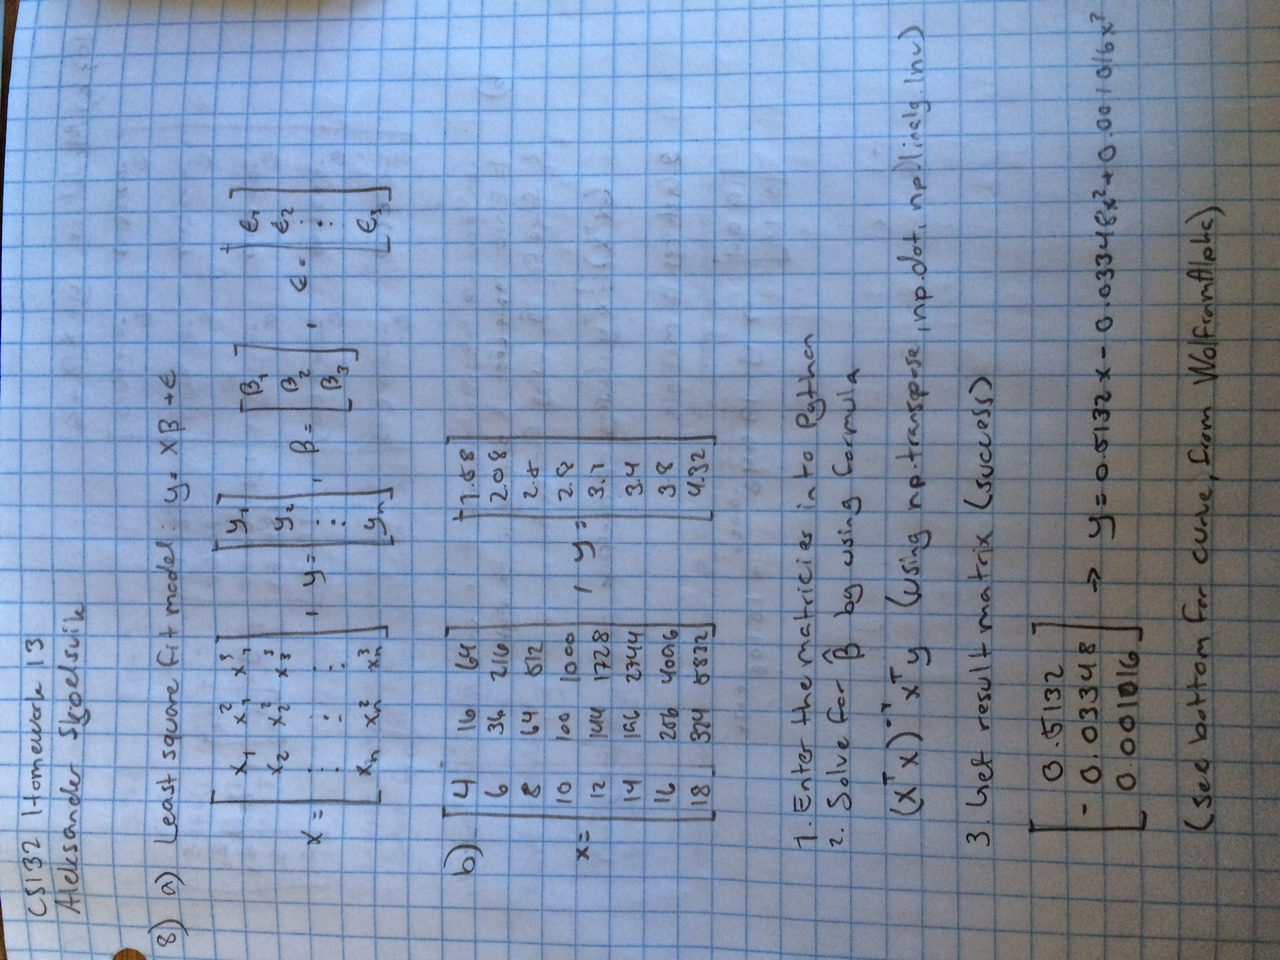 CS132 Homework 13
Aleksander Skoelsvik
8) a) Least square fit model: y = Xβ + ϵ
X = [ x₁ x₁² x₁³ ; x₂ x₂² x₃³ ; ⋮ ⋮ ⋮ ; xₙ xₙ² xₙ³ ] , y = [ y₁ ; y₂ ; ⋮ ; yₙ ] , β = [ β₁ ; β₂ ; β₃ ] , ϵ = [ ϵ₁ ; ϵ₂ ; ⋮ ; ϵ₃ ]
b)
x = [ 4 16 64 ; 6 36 216 ; 8 64 512 ; 10 100 1000 ; 12 144 1728 ; 14 196 2744 ; 16 256 4096 ; 18 324 5832 ] , y = [ 1.58 ; 2.08 ; 2.5 ; 2.8 ; 3.1 ; 3.4 ; 3.8 ; 4.32 ]
1. Enter the matricies into Python
2. Solve for β̂ by using formula
(XᵀX)⁻¹Xᵀy (using np.transpose, np.dot, np.linalg.inv)
3. Get result matrix (success)
[ 0.5132 ; -0.03348 ; 0.001016 ] → y = 0.5132x - 0.03348x² + 0.001016x³
(see bottom for curve, from WolframAlpha)